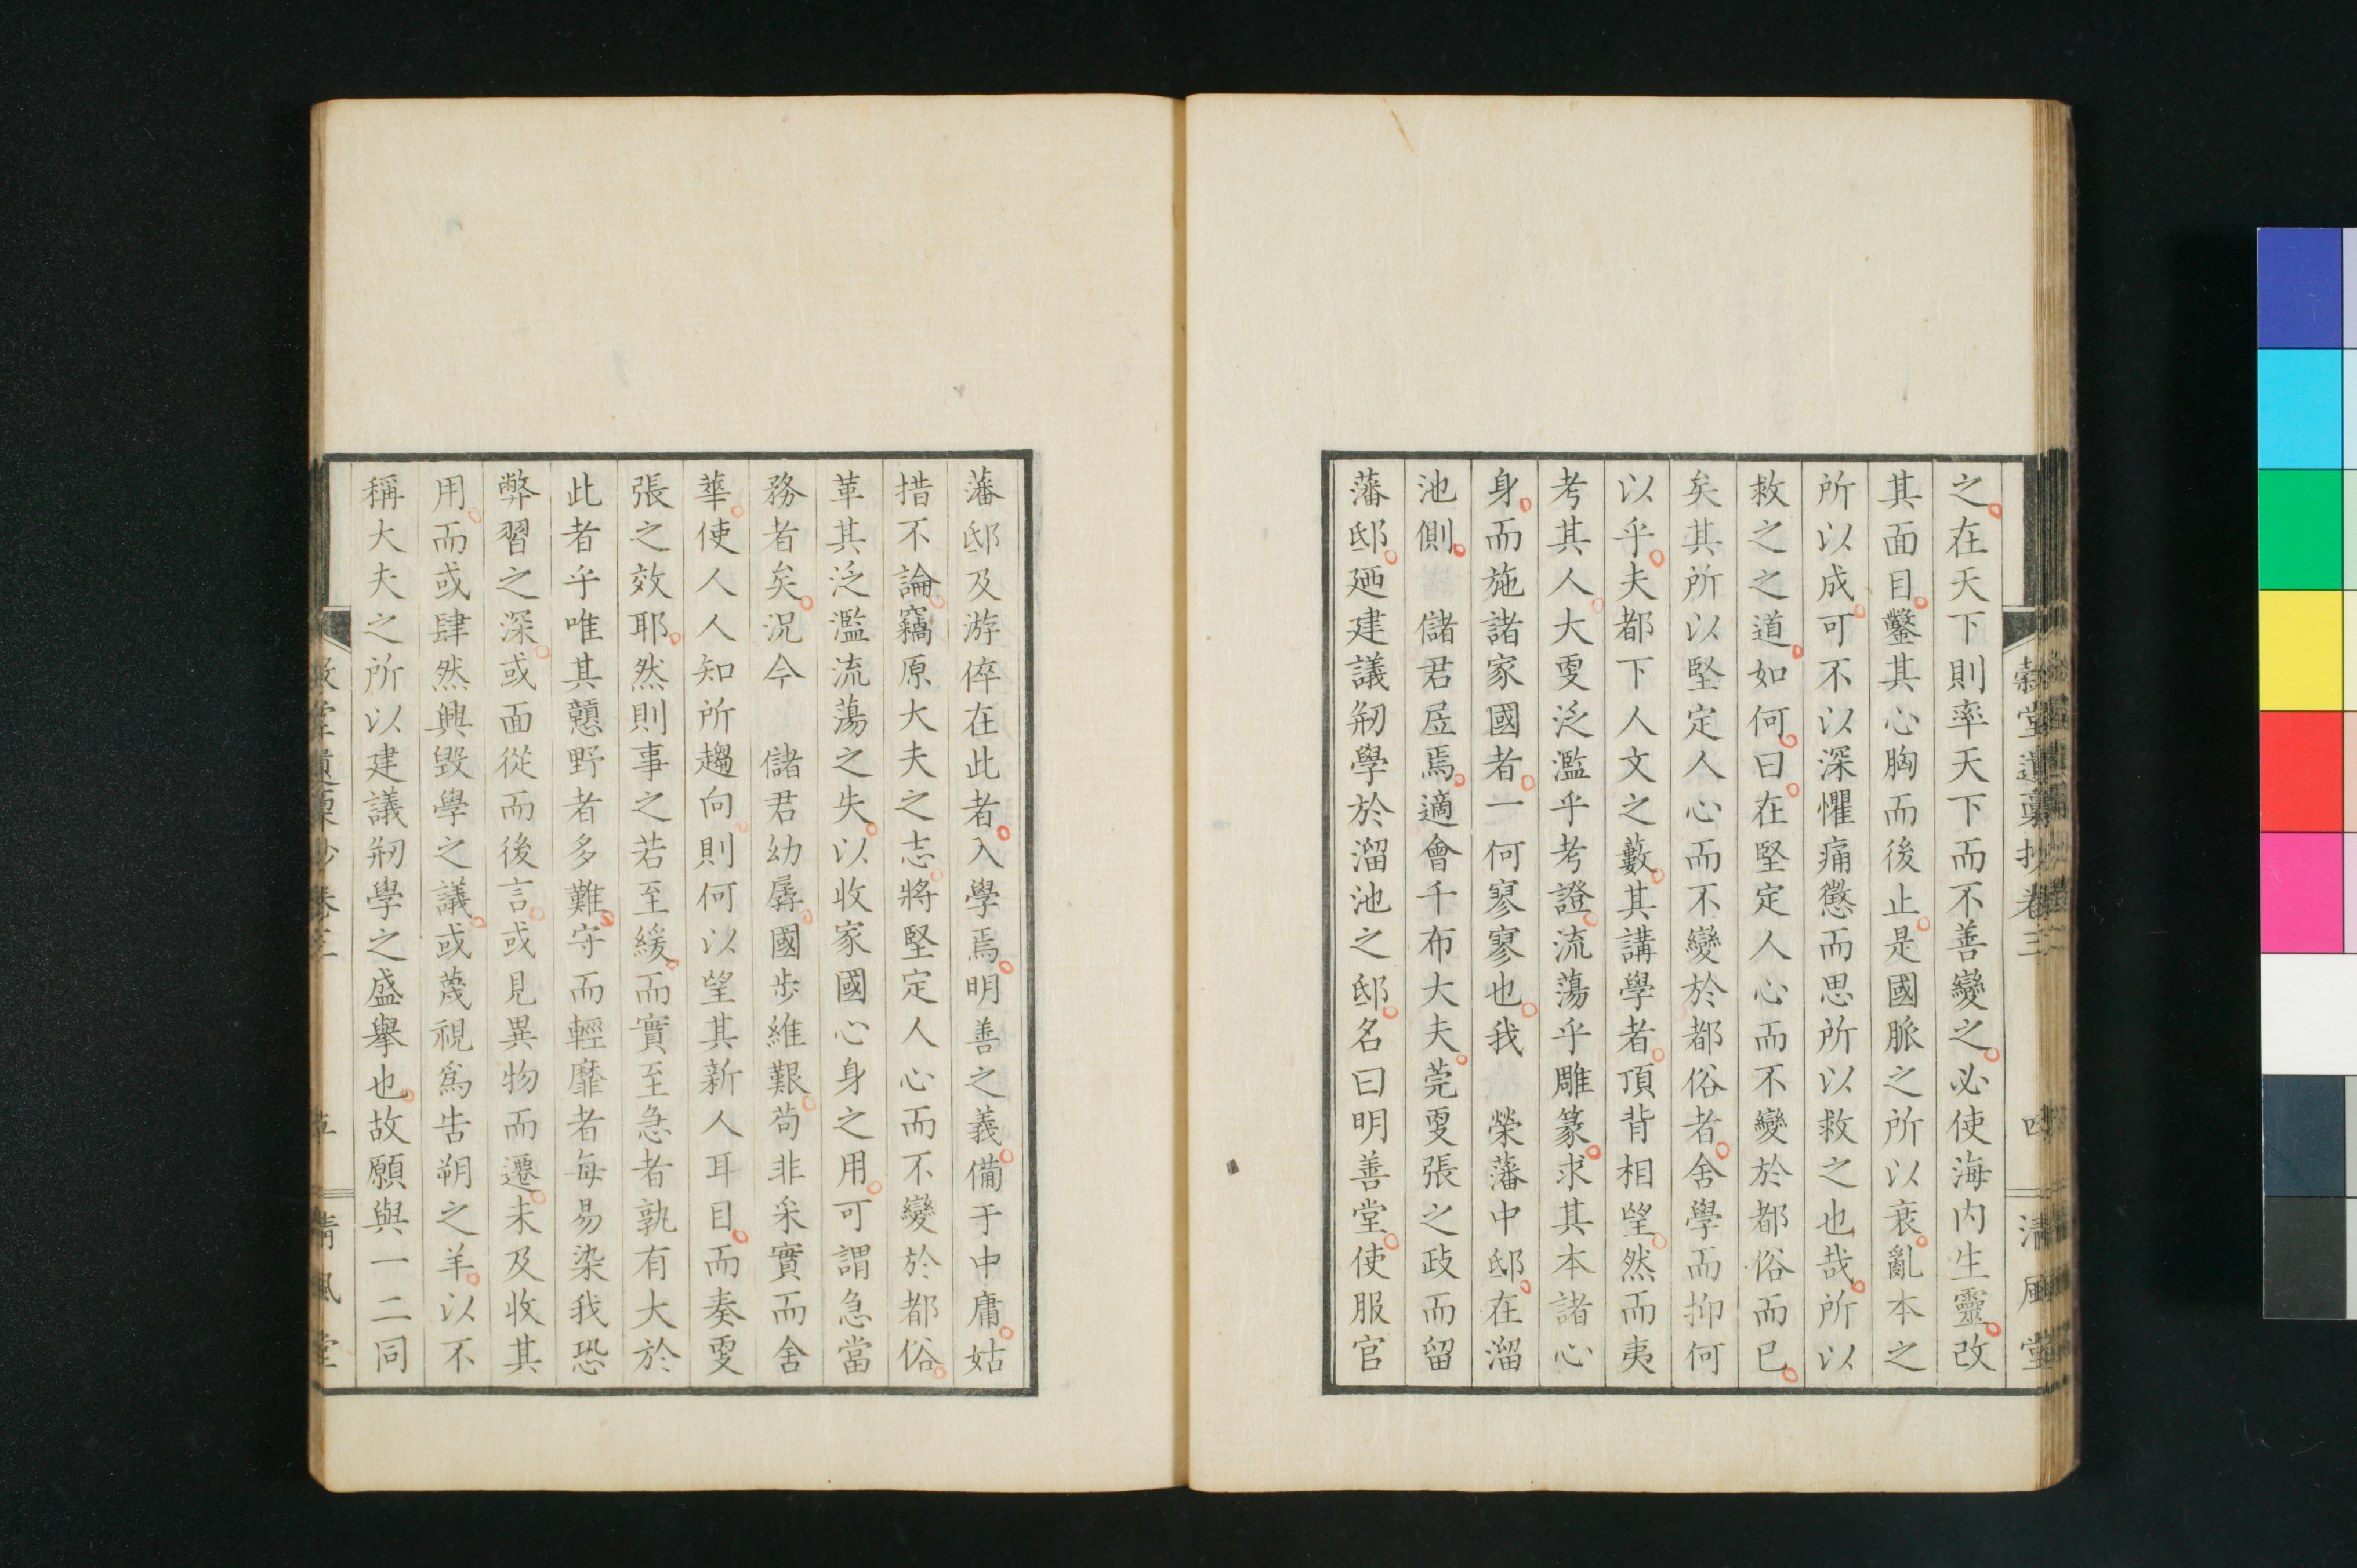 穀堂遺稾抄卷三 四 清風堂
之在天下則率天下而不善變之必使海内生靈改
其面目鑿其心胸而後止是國脈之所以衰亂本之
所以成可不以深懼痛懲而思所以救之也哉所以
救之之道如何曰在堅定人心而不變於都俗而已
矣其所以堅定人心而不變於都俗者舍學而抑何
以乎夫都下人文之藪其講學者頂背相望然而夷
考其人大雯泛濫乎考證流蕩乎雕篆求其本諸心
身而施諸家國者一何寥寥也我 榮藩中邸在溜
池側 儲君居焉適會千布大夫莞雯張之政而留
藩邸廼建議剏學於溜池之邸名曰明善堂使服官
藩邸及游倅在此者入學焉明善之義備于中庸姑
措不論竊原大夫之志將堅定人心而不變於都俗
革其泛濫流蕩之失以收家國心身之用可謂急當
務者矣況今 儲君幼孱國步維艱苟非采實而舍
華使人人知所趨向則何以望其新人耳目而奏雯
張之效耶然則事之若至緩而實至急者孰有大於
此者乎唯其戇野者多難守而輕靡者每易染我恐
弊習之深或面從而後言或見異物而遷未及收其
用而或肆然興毀學之議或蔑視爲告朔之羊以不
稱大夫之所以建議剏學之盛舉也故願與一二同